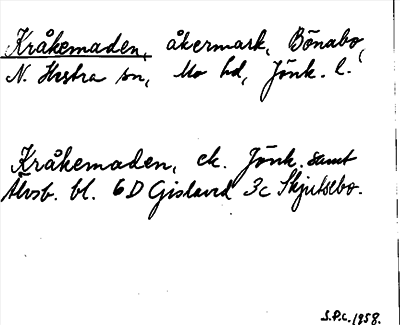 Kråkemaden, åkermark, Bönabo,
N. Hestra sn, Mo hd, Jönk. l.
Kråkemaden, ek. Jönk. samt
Älvsb. bl. 6D Gislaved 3c Skjutsebo.
S.P.C. 1958.